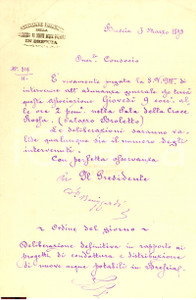 Brescia 3 Marzo 1893
Consocio
È vivamente pregata la S. V. Ill. di
intervenire all'adunanza generale che terrà
questa Associazione Giovedì 9 corr. alle
ore 2 pom. nella Sala della Croce
Rossa (Palazzo Broletto)
Le deliberazioni saranno va-
lide qualunque sia il numero degli
intervenuti.
Con perfetta osservanza
Il Presidente
Ordine del giorno
Deliberazione definitiva in rapporto ai
progetti di conduttura e distribuzione
di nuove acque potabili in Brescia